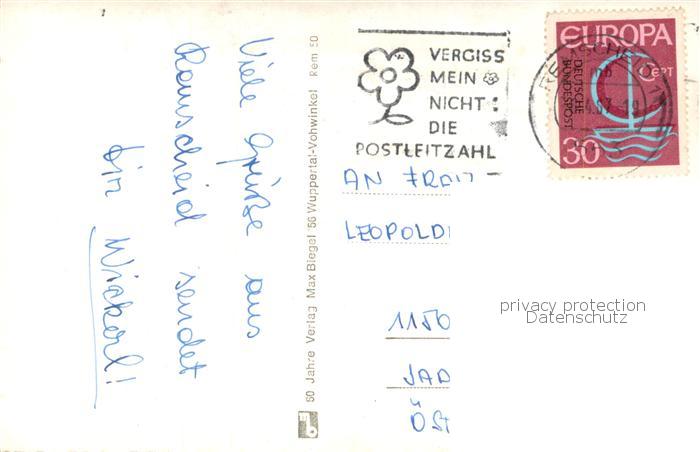 Viele Grüße aus
Remscheid sendet
Wickerl!
50 Jahre Verlag Max Biegel 56 Wuppertal-Vohwinkel Rem 50
VERGISS
MEIN
NICHT:
DIE
POSTLEITZAHL
EUROPA
CEPT
DEUTSCHE
BUNDESPOST
30
AN FRAU
LEOPOLDI
1150
ÖST
privacy protection
Datenschutz